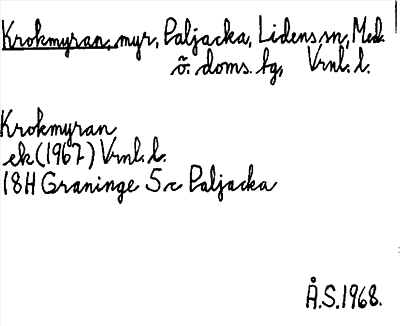 Krokmyran, myr, Paljacka, Lidens sn, Med.
ö. doms. bg, Vrnl. l.
Krokmyran
ek (1967) Vrnl. l.
18H Graninge 5 c Paljacka
Å.S. 1968.